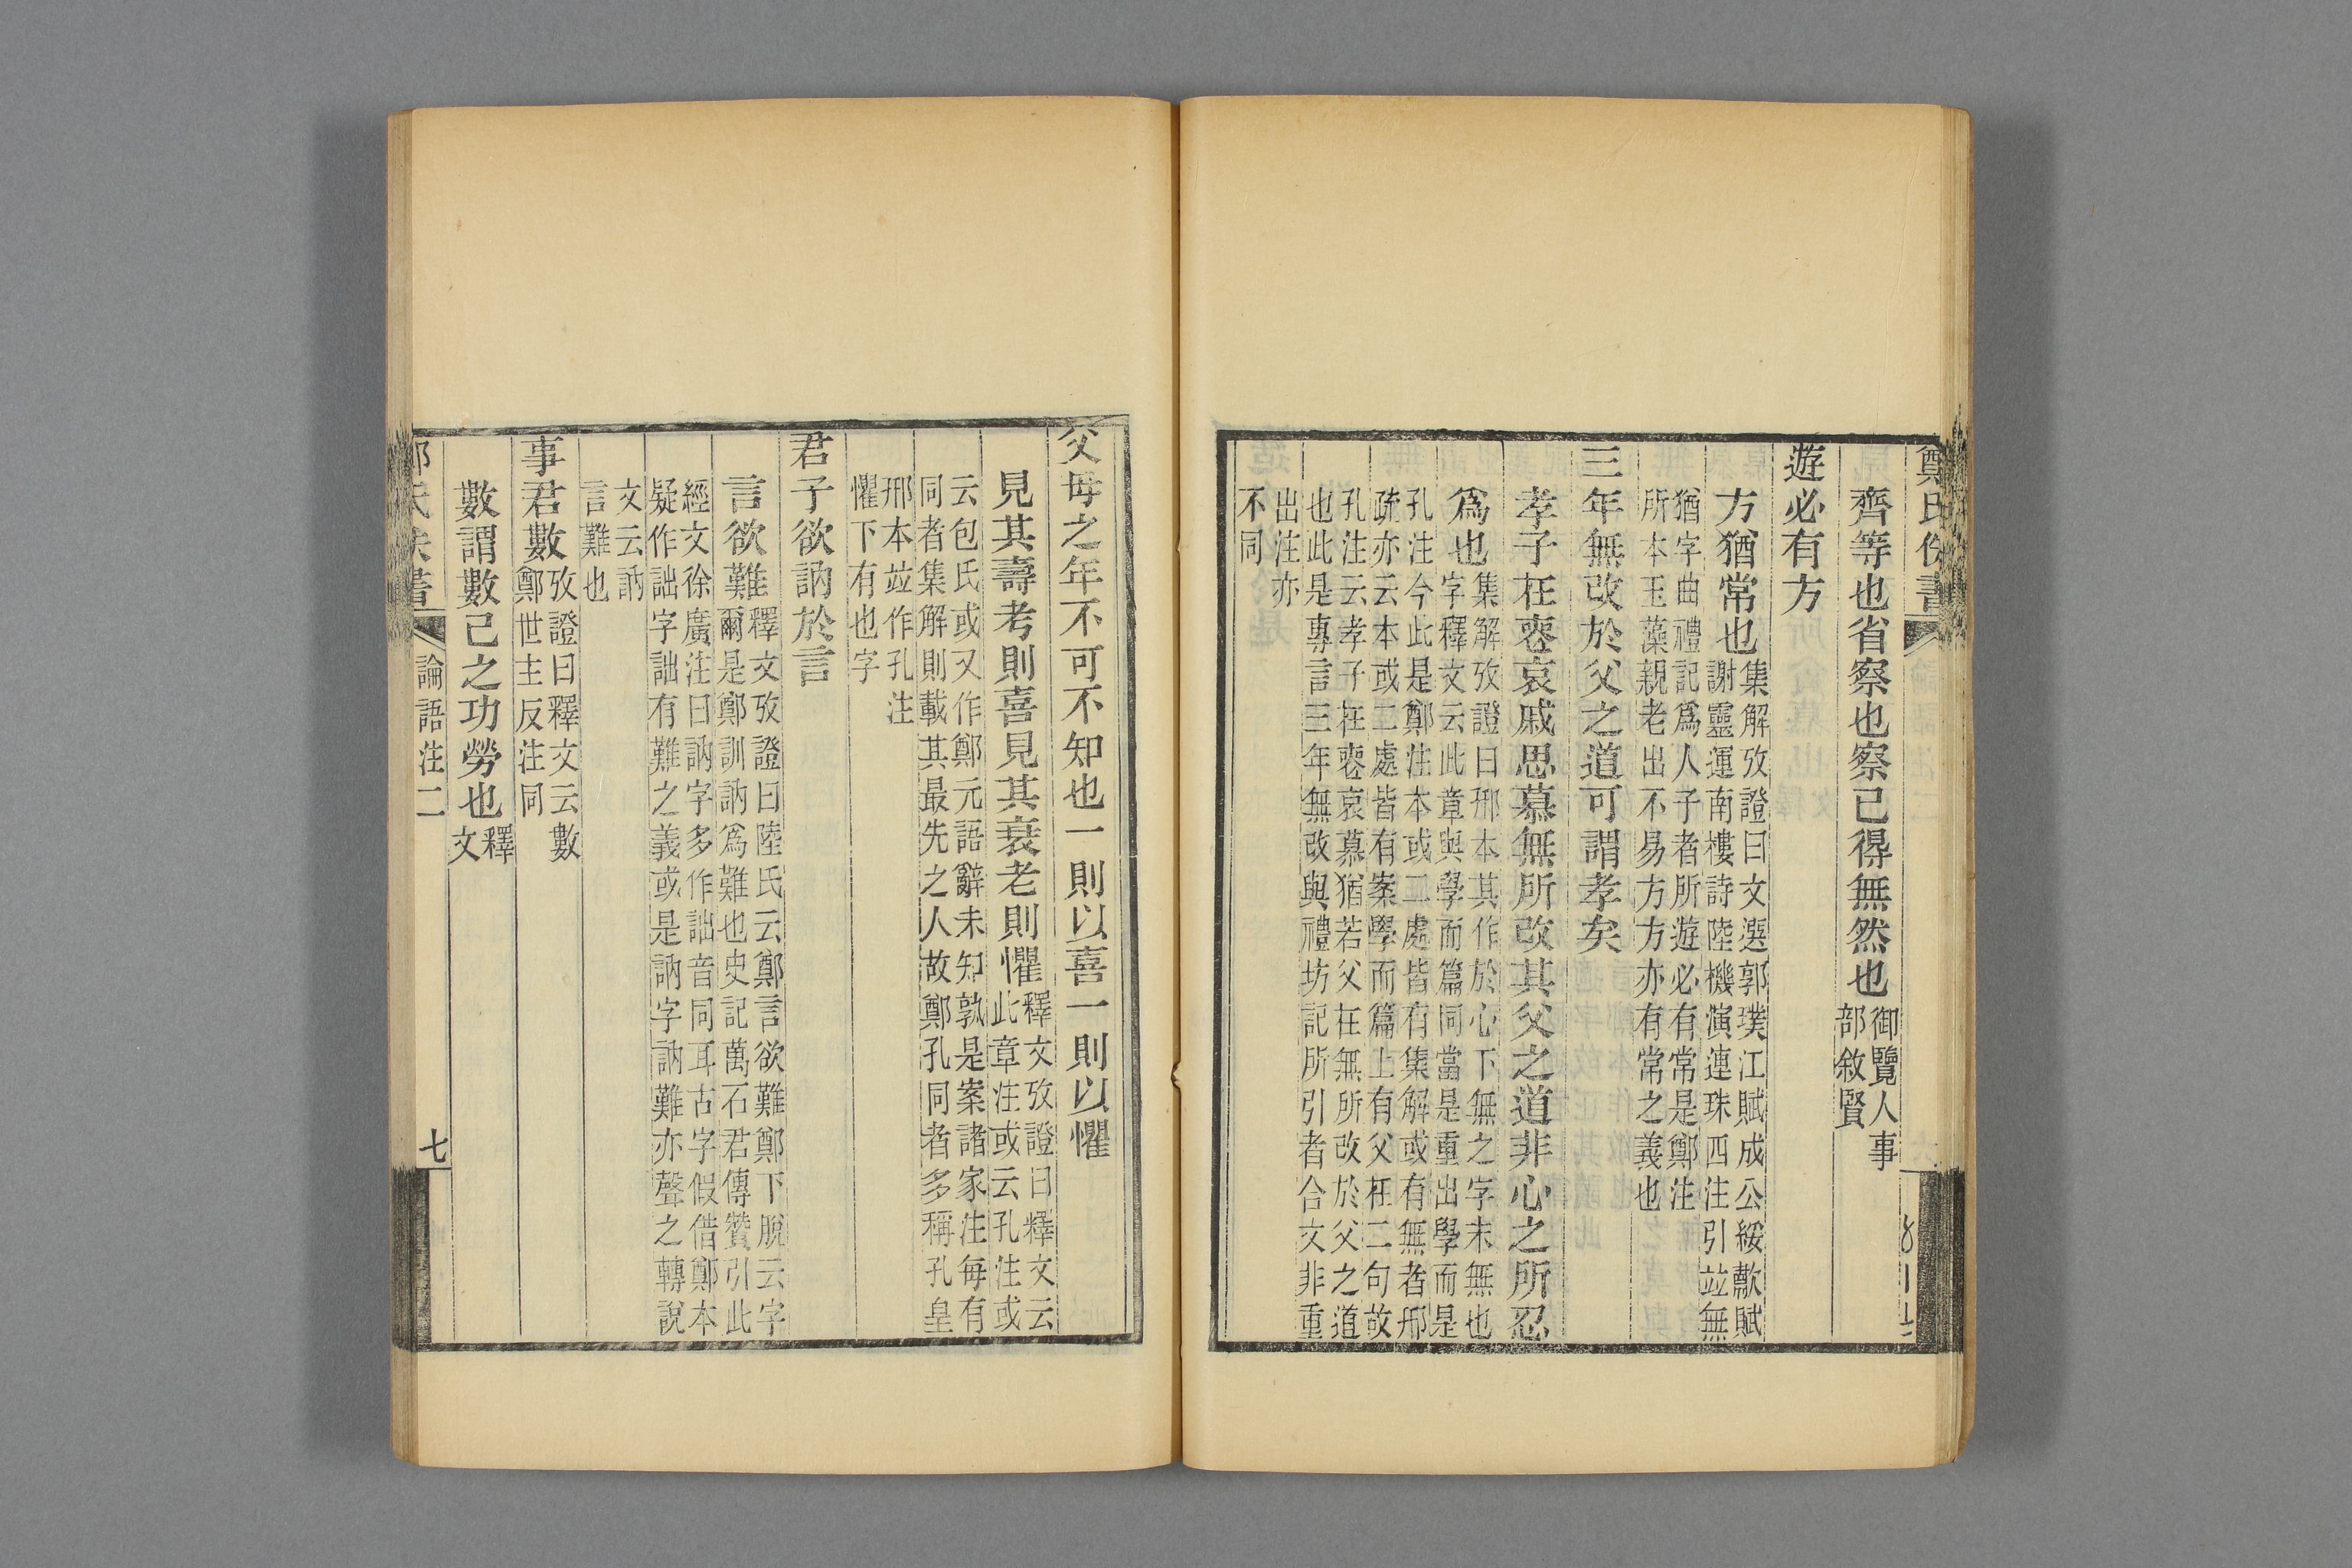 鄭氏佚書
齊等也省察也察已得無然也
御覽人事
部敘賢
遊必有方
方猶常也
集解攷證曰文選郭璞江賦成公綏歗賦
謝靈運南樓詩陸機演連珠四注引竝無
猶字曲禮記爲人子者所遊必有常是鄭注
所本玉藻親老出不易方方亦有常之義也
三年無改於父之道可謂孝矣
孝子在喪哀戚思慕無所改其父之道非心之所忍
爲也
集解攷證曰邢本其作於心下無之字末無也
字釋文云此章與學而篇同當是重出學而是
孔注今此是鄭注本或二處皆有集解或有無者邢
疏亦云本或二處皆有案學而篇上有父在二句故
孔注云孝子在喪哀慕猶若父在無所改於父之道
也此是專言三年無改與禮坊記所引者合文非重
出注亦
不同
父母之年不可不知也一則以喜一則以懼
見其壽考則喜見其衰老則懼
釋文攷證曰釋文云
此章注或云孔注或
云包氏或又作鄭元語辭未知孰是案諸家注每有
同者集解則載其最先之人故鄭孔同者多稱孔皇
邢本竝作孔注
懼下有也字
君子欲訥於言
言欲難
釋文攷證曰陸氏云鄭言欲難鄭下脫云字
爾是鄭訓訥爲難也史記萬石君傳贊引此
經文徐廣注曰訥字多作詘音同耳古字假借鄭本
疑作詘字詘有難之義或是訥字訥難亦聲之轉說
文云訥
言難也
事君數
攷證曰釋文云數
鄭世主反注同
數謂數己之功勞也
釋
文
論語注二
七